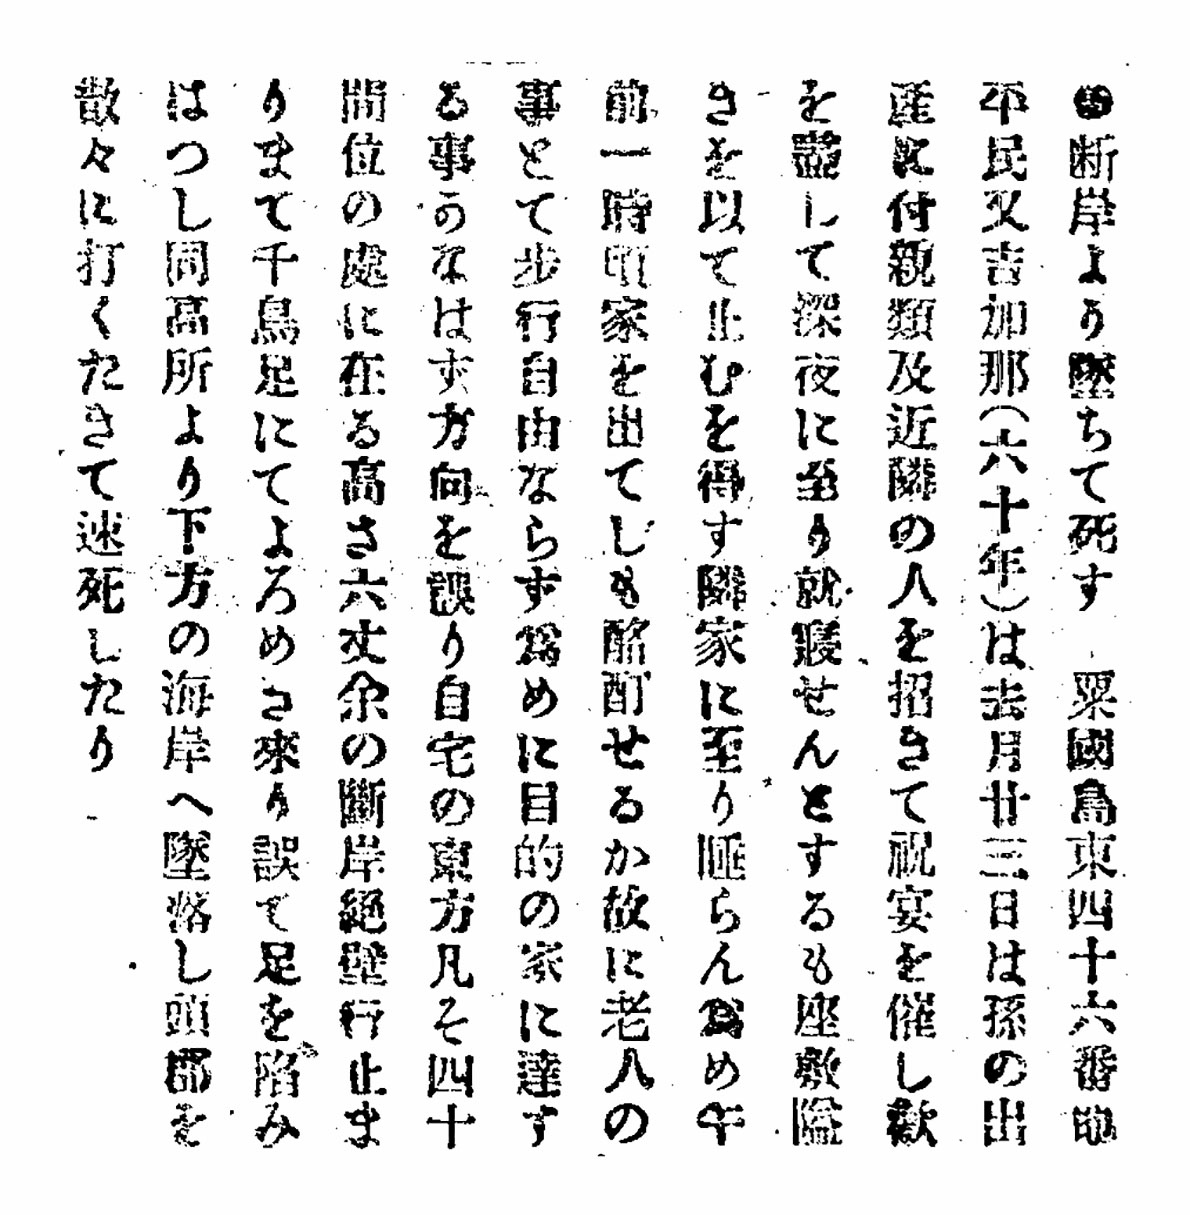 ●断岸より墜ちて死す　粟國島東四十六番地
平民又吉加那(六十年)は去月廿三日は孫の出
産に付親類及近隣の人を招きて祝宴を催し歓
を盡して深夜に至り就寝せんとするも座敷隘
きを以て止むを得す隣家に至り睡らん為め午
前一時頃家を出てしも酩酊せるか故に老人の
事とて歩行自由ならす為めに目的の家に達す
る事かなはす方向を誤り自宅の東方凡そ四十
間位の處に在る高さ六丈余の斷岸絶壁行止ま
りまて千鳥足にてよろめき來り誤て足を陷み
はつし同高所より下方の海岸へ墜落し頭郡を
散々に打くたきて速死したり